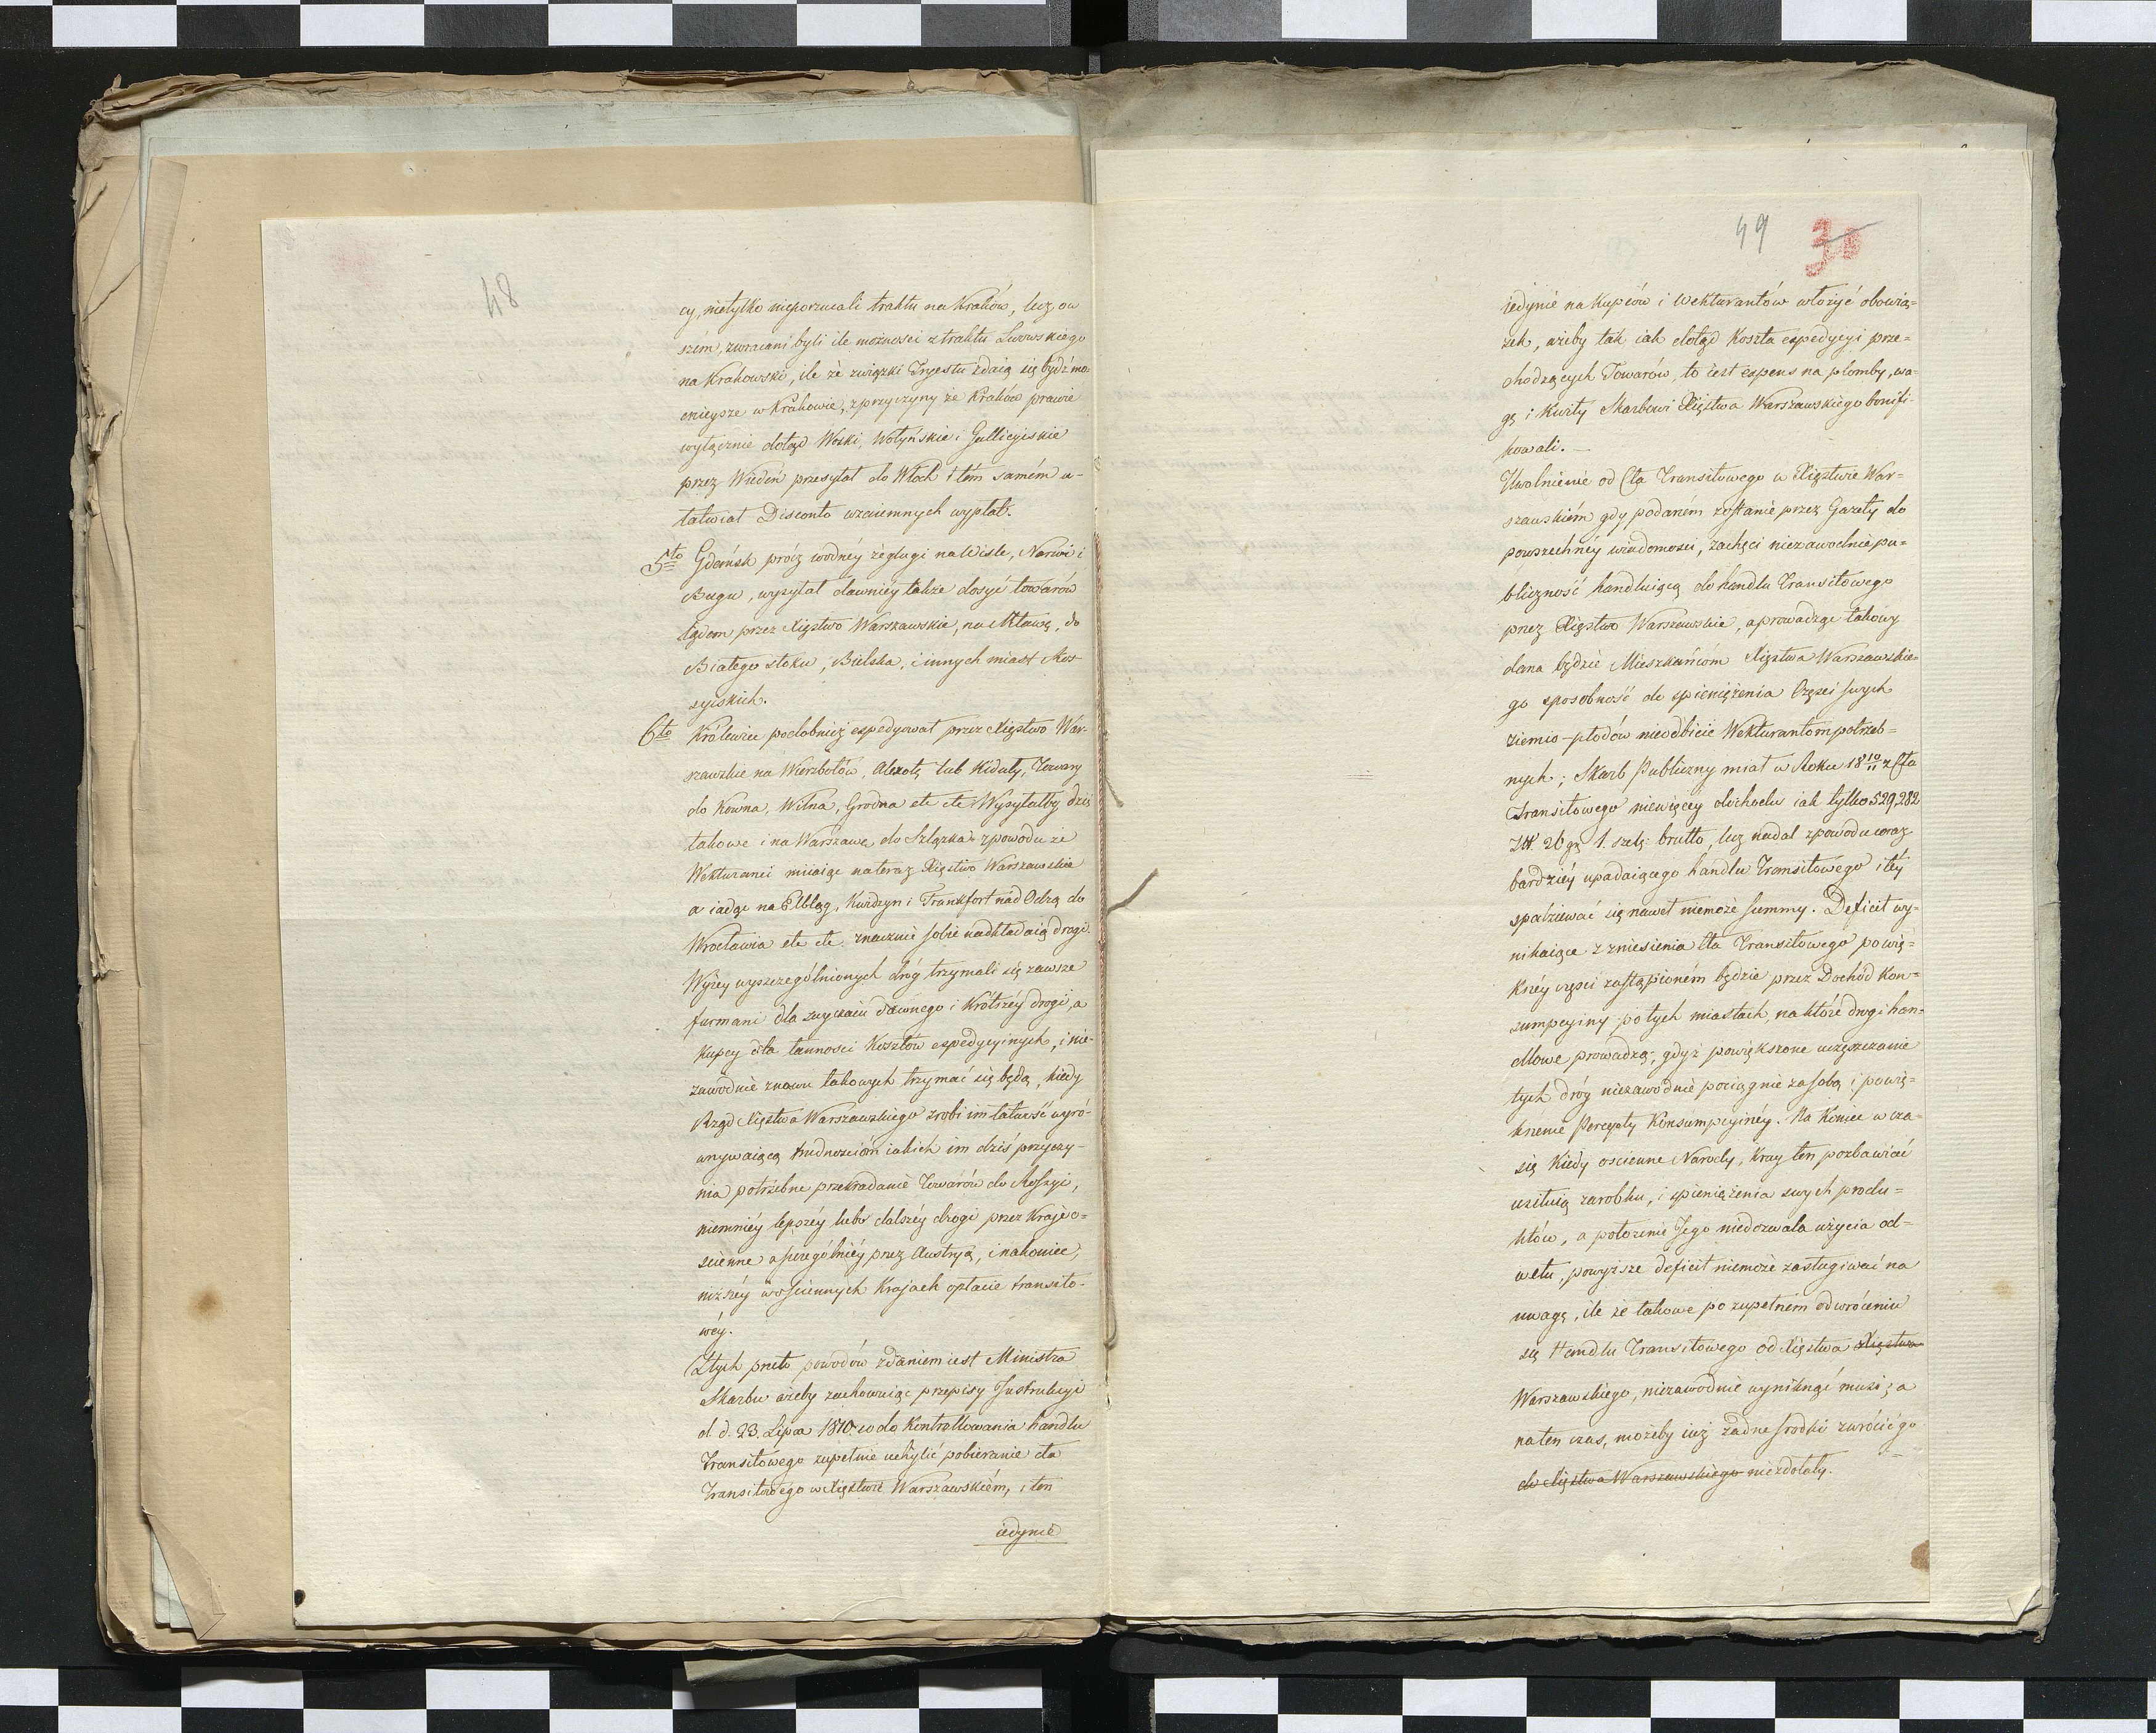 48
cy, nietylko nieporzucali traktu na Kraków, lecz ow
szem, zwracani byli ile możności z traktu Lwowskiego
na Krakowski, ile że związki Tryestu zdaią się bydź mo-
cnieysze w Krakowie, z przyczyny że Kraków prawie
wyłącznie dotąd Woski, Wołyńskie i Gallicyiskie
przez Wiedeń przesyłał do Włoch i tém samém u-
łatwiał Disconto wzaiemnych wypłat.
5to Gdańsk prócz wodnéy żeglugi na Wiśle, Narwi i
Bugu, wysyłał dawniéy także dosyć towarów
lądem przez Xięstwo Warszawskie, na Mławę, do
Białego stoku, Bielska, i innych miast Ros-
syiskich.
6to Królewiec podobnież expedyował przez Xięstwo War-
szawskie na Wierzbołów, Alexotę lub Kiduły, Towary
do Kowna, Wilna, Grodna etc etc Wysyłałby dziś
takowe i na Warszawę do Szląska z powodu że
Wekturanci miiaiąc nateraz Xięstwo Warszawskie
a iadąc na Elbląg, Kwidzyn i Frankfort nad Odrą do
Wrocławia etc etc. znacznie sobie nadkładaią drogi.
Wyżey wyszczególnionych dróg trzymali się zawsze
furmani dla zwyczaiu dawnego i krótszéy drogi, a
kupcy dla tanności kosztów expedycyinych, i nie-
zawodnie znowu takowych trzymać się będą, kiedy
Rząd Xięstwa Warszawskiego zrobi im łatwość wyró-
wnywaiącą trudnościom iakich im dziś przyczy-
nia potrzebne przekradanie Towarów do Rossyi,
niemniéy lepszéy lubo dalszéy drogi przez Kraje o-
ścienne a szczególniéy przez Austryą, i nakoniec,
niższéy w ościennych Krajach opłacie transito-
wéy.
Z tych przeto powodów zdaniem iest Ministra
Skarbu ażeby zachowuiąc przepisy Instrukcyi
d. d. 23. Lipca 1810. co do kontrollowania handlu
Transitowego zupełnie uchylić pobieranie cła
Transitowego w Xięstwie Warszawskiém, i ten
iedynie
49 30
iedynie na Kupców i Wekturantów włożyć obowią-
zek, ażeby tak iak dotąd koszta expedycyi prze-
chodzących Towarów, to iest expens na plomby, wa-
gę i kwity Skarbowi Xięstwa Warszawskiego bonifi-
kowali. —
Uwolnienie od Cła Transitowego w Xięstwie War-
szawskiém gdy podaném zostanie przez Gazety do
powszechnéy wiadomości, zachęci niezawodnie pu-
bliczność handluiącą do handlu Transitowego
przez Xięstwo Warszawskie, a prowadząc takowy
dana będzie Mieszkańcom Xięstwa Warszawskie-
go sposobność do spieniężenia Części swych
ziemio-płodów nieodbicie Wekturantom potrzeb-
nych; Skarb Publiczny miał w Roku 18 10/11 z Cła
Transitowego niewięcey dochodu iak tylko 529,282
Zł. 26 gr. 1. szelg: brutto, lecz nadal z powodu coraz
bardziéy upadaiącego handlu Transitowego i téy
spodziewać się nawet niemoże summy. Deficit wy-
nikaiące z zniesienia cła Transitowego po wię-
kszéy części zastąpioném będzie przez Dochód kon-
sumpcyiny po tych miastach, na któré drogi han-
dlowe prowadzą, gdyż powiększone uczęszczanie
tych dróg niezawodnie pociągnie za sobą i powię-
kszenie Percepty Konsumpcyinéy. Na koniec w cza-
się kiedy ościenne Narody, kray ten pozbawiać
usiłuią zarobku, i spieniężenia swych produ-
któw, a położenie Jego niedozwala użycia od-
wetu, powyższe deficit niemoże zasługiwać na
uwagę, ile że takowe po zupełném odwróceniu
się Handlu Transitowego od Xięstwa Xięstwa
Warszawskiego, niezawodnie wyniknąć musi; a
na ten czas, możeby iuż żadne srodki zwrócić go
do Xięstwa Warszawskiego niezdołały.